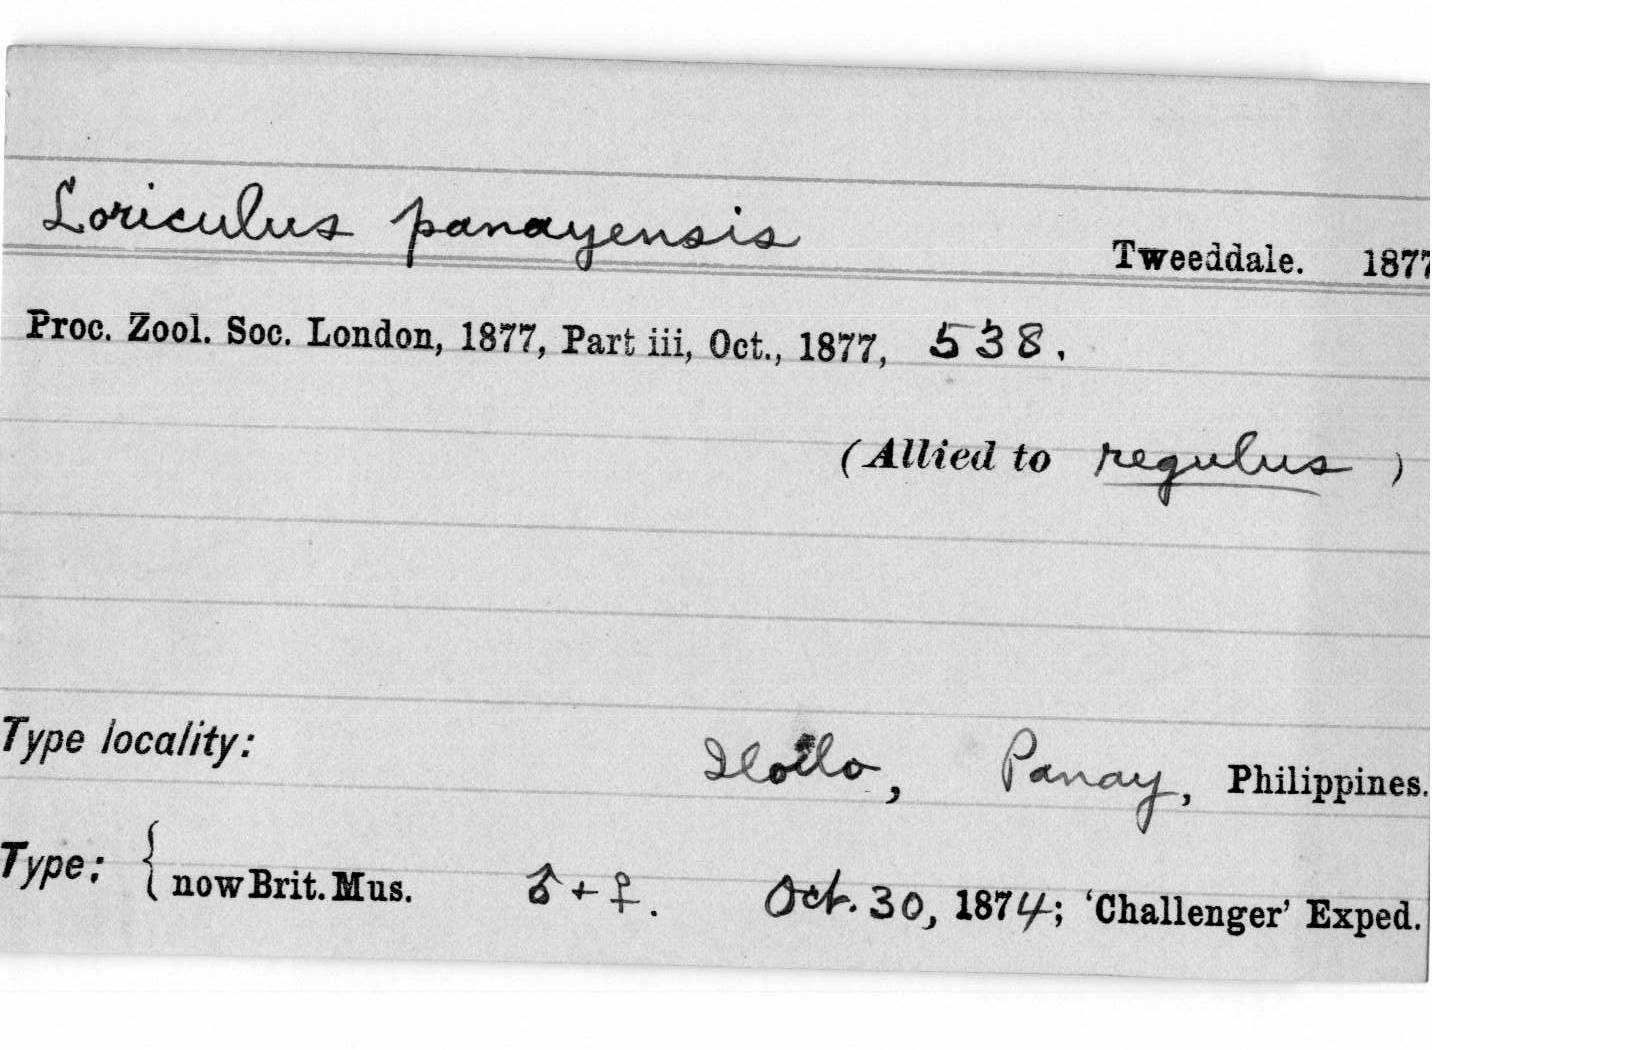 Loriculus panayensis Tweeddale. 1877
Proc. Zool. Soc. London, 1877, Part iii, Oct., 1877, 538.
(Allied to regulus )
Type locality: Iloilo, Panay, Philippines.
Type: { now Brit. Mus. ♂ + ♀. Oct. 30, 1874; 'Challenger' Exped.